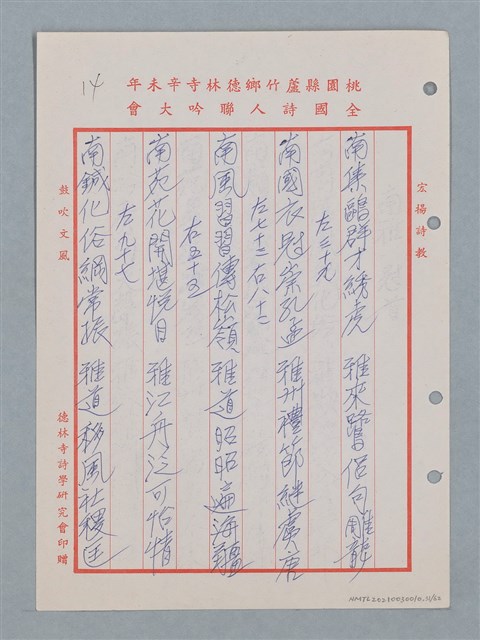 14
桃園縣蘆竹鄉德林寺辛未年
全國詩人聯吟大會
宏揚詩教
南集鷗群才綉虎 雅來鷺侶句雕龍
左三十九
南國衣冠崇孔孟 雅州禮節繼虞唐
左七十二右八十二
南風習習傳松嶺 雅道昭昭遍海疆
右五十五
南苑花開堪悅目 雅江舟泛可怡情
左九十七
南鍼化俗綱常振 雅道移風社稷匡
鼓吹文風
德林寺詩學研究會印贈